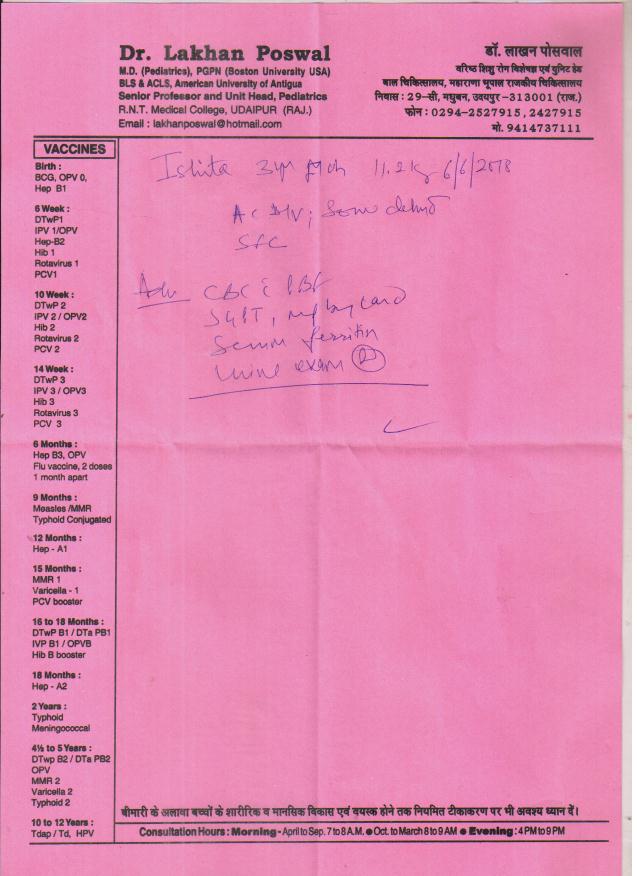 Dr. Lakhan Poswal
M.D. (Pediatrics), PGPN (Boston University USA)
BLS & ACLS, American University of Antigua
Senior Professor and Unit Head, Pediatrics
R.N.T. Medical College, UDAIPUR (RAJ.)
Email : lakhanposwal@hotmail.com
डॉ. लाखन पोसवाल
वरिष्ठ शिशु रोग विशेषज्ञ एवं यूनिट हेड
बाल चिकित्सालय, महाराणा भूपाल राजकीय चिकित्सालय
निवास : 29-सी, मधुबन, उदयपुर-313001 (राज.)
फोन : 0294-2527915, 2427915
मो. 9414737111
VACCINES
Birth :
BCG, OPV 0,
Hep B1
6 Week :
DTwP1
IPV 1/OPV
Hep-B2
Hib 1
Rotavirus 1
PCV1
10 Week :
DTwP 2
IPV 2 / OPV2
Hib 2
Rotavirus 2
PCV 2
14 Week :
DTwP 3
IPV 3 / OPV3
Hib 3
Rotavirus 3
PCV 3
6 Months :
Hep B3, OPV
Flu vaccine, 2 doses
1 month apart
9 Months :
Measles /MMR
Typhoid Conjugated
12 Months :
Hep - A1
15 Months :
MMR 1
Varicella - 1
PCV booster
16 to 18 Months :
DTwP B1 / DTa PB1
IVP B1 / OPVB
Hib B booster
18 Months :
Hep - A2
2 Years :
Typhoid
Meningococcal
4½ to 5 Years :
DTwp B2 / DTa PB2
OPV
MMR 2
Varicella 2
Typhoid 2
10 to 12 Years :
Tdap / Td, HPV
Ishita 3yr 11.2 kg 6/6/2018
Adv CBC c PBF
SGPT, card
Serum ferritin
Urine exam (R)
बीमारी के अलावा बच्चों के शारीरिक व मानसिक विकास एवं वयस्क होने तक नियमित टीकाकरण पर भी अवश्य ध्यान दें।
Consultation Hours : Morning - April to Sep. 7 to 8 A.M. ● Oct. to March 8 to 9 AM ● Evening : 4 PM to 9 PM